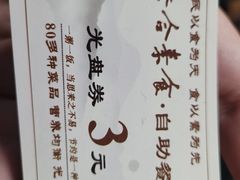 民以食为天 食以素为先
合素食·自助餐
光盘券 3元
一粥一饭，当思来之不易，节约是一种
80多种菜品 营养均衡 光